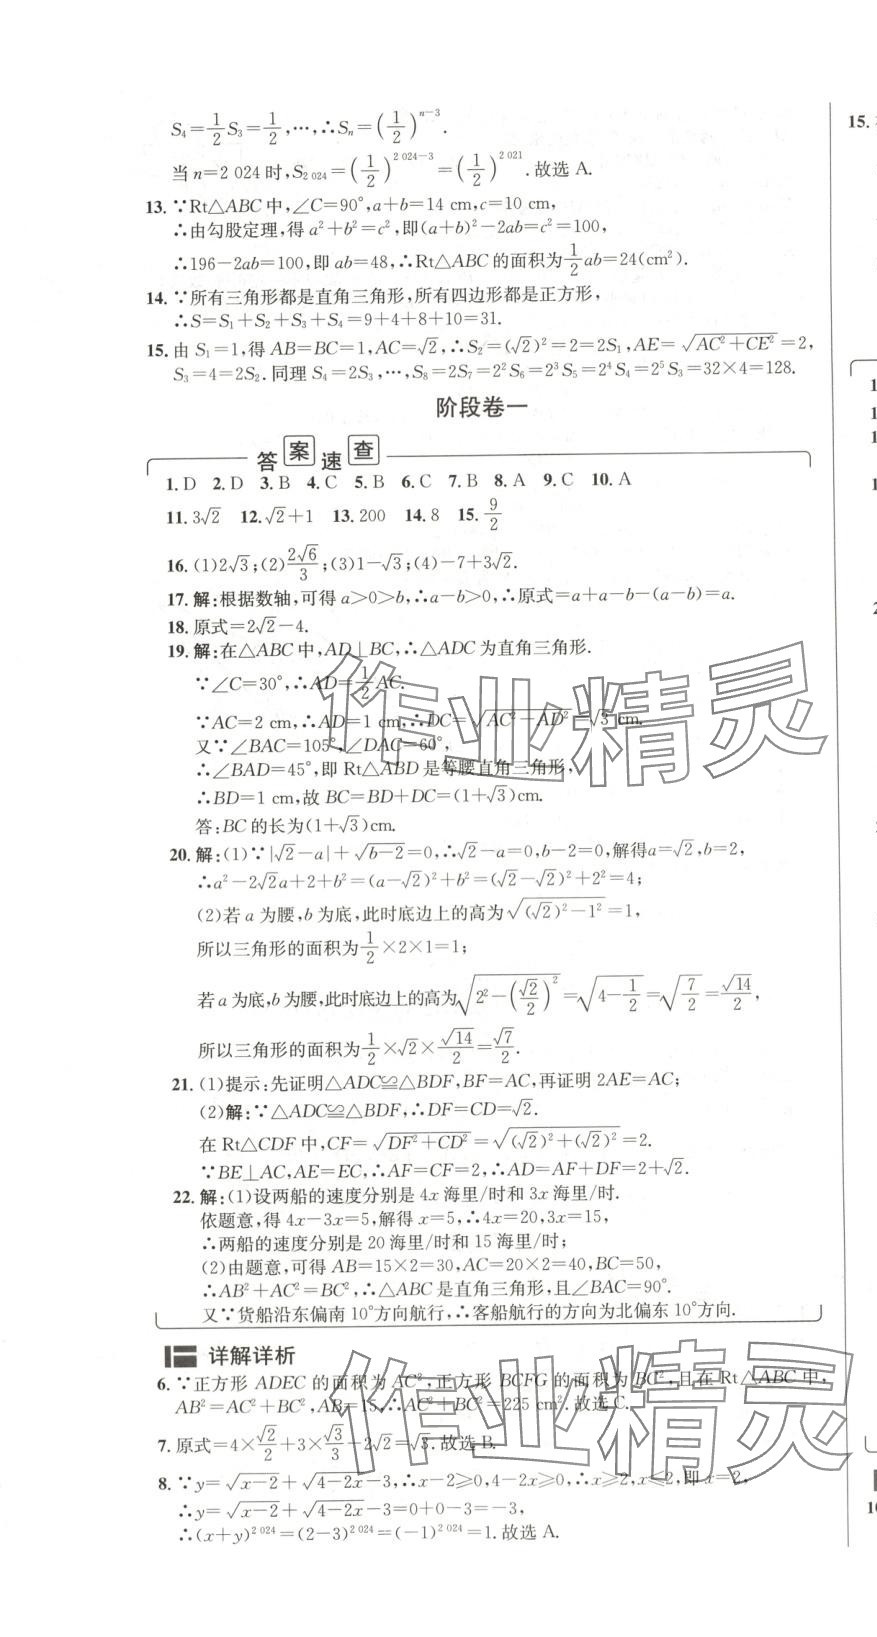 S₄=1/2 S₃=1/2,…,∴Sₙ=(1/2)ⁿ⁻³.
当 n=2 024 时,S₂ ₀₂₄=(1/2)² ⁰²⁴⁻³=(1/2)² ⁰²¹.故选 A.
13. ∵Rt△ABC 中,∠C=90°,a+b=14 cm,c=10 cm,
∴由勾股定理,得 a²+b²=c²,即(a+b)²-2ab=c²=100,
∴196-2ab=100,即 ab=48,∴Rt△ABC 的面积为 1/2 ab=24(cm²).
14. ∵所有三角形都是直角三角形,所有四边形都是正方形,
∴S=S₁+S₂+S₃+S₄=9+4+8+10=31.
15. 由 S₁=1,得 AB=BC=1,AC=√2,∴S₂=(√2)²=2=2S₁,AE=√(AC²+CE²)=2,
S₃=4=2S₂.同理 S₄=2S₃,…,S₈=2S₇=2²S₆=2³S₅=2⁴S₄=2⁵S₃=32×4=128.
阶段卷一
答案速查
1. D 2. D 3. B 4. C 5. B 6. C 7. B 8. A 9. C 10. A
11. 3√2 12. √2+1 13. 200 14. 8 15. 9/2
16. (1)2√3;(2)2√6/3;(3)1-√3;(4)-7+3√2.
17. 解:根据数轴,可得 a>0>b,∴a-b>0,∴原式=a+a-b-(a-b)=a.
18. 原式=2√2-4.
19. 解:在△ABC 中,AD⊥BC,∴△ADC 为直角三角形.
∵∠C=30°,∴AD=1/2 AC.
∵AC=2 cm,∴AD=1 cm,∴DC=√(AC²-AD²)=√3 cm.
又∵∠BAC=105°,∠DAC=60°,
∴∠BAD=45°,即 Rt△ABD 是等腰直角三角形,
∴BD=1 cm,故 BC=BD+DC=(1+√3)cm.
答:BC 的长为(1+√3)cm.
20. 解:(1)∵|√2-a|+√(b-2)=0,∴√2-a=0,b-2=0,解得a=√2,b=2,
∴a²-2√2a+2+b²=(a-√2)²+b²=(√2-√2)²+2²=4;
(2)若 a 为腰,b 为底,此时底边上的高为√((√2)²-1²)=1,
所以三角形的面积为 1/2×2×1=1;
若 a 为底,b 为腰,此时底边上的高为√(2²-(√2/2)²)=√(4-1/2)=√(7/2)=√14/2,
所以三角形的面积为 1/2×√2×√14/2=√7/2.
21. (1)提示:先证明△ADC≌△BDF,BF=AC,再证明 2AE=AC;
(2)解:∵△ADC≌△BDF,∴DF=CD=√2.
在 Rt△CDF 中,CF=√(DF²+CD²)=√((√2)²+(√2)²)=2.
∵BE⊥AC,AE=EC,∴AF=CF=2,∴AD=AF+DF=2+√2.
22. 解:(1)设两船的速度分别是 4x 海里/时和 3x 海里/时.
依题意,得 4x-3x=5,解得 x=5,∴4x=20,3x=15,
∴两船的速度分别是 20 海里/时和 15 海里/时;
(2)由题意,可得 AB=15×2=30,AC=20×2=40,BC=50,
∴AB²+AC²=BC²,∴△ABC 是直角三角形,且∠BAC=90°.
又∵货船沿东偏南 10°方向航行,∴客船航行的方向为北偏东 10°方向.
详解详析
6. ∵正方形 ADEC 的面积为 AC²,正方形 BCFG 的面积为 BC²,且在 Rt△ABC 中,
AB²=AC²+BC²,AB=15,∴AC²+BC²=225 cm².故选 C.
7. 原式=4×√2/2+3×√3/3-2√2=√3.故选 B.
8. ∵y=√(x-2)+√(4-2x)-3,∴x-2≥0,4-2x≥0,∴x≥2,x≤2,即 x=2,
∴y=√(x-2)+√(4-2x)-3=0+0-3=-3,
∴(x+y)² ⁰²⁴=(2-3)² ⁰²⁴=(-1)² ⁰²⁴=1.故选 A.
作业精灵
作业精灵
15.